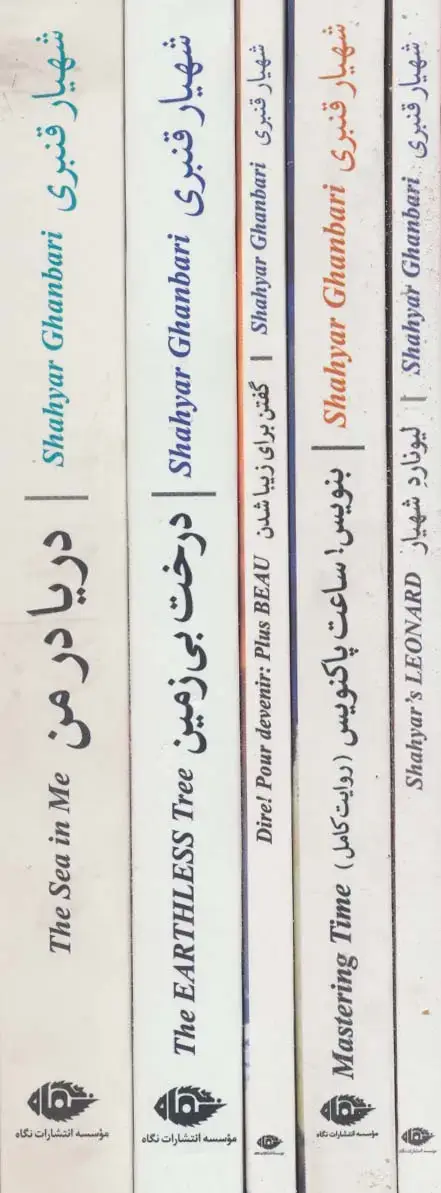 شهیار قنبری
Shahyar Ghanbari
دریا در من
The Sea in Me
مؤسسه انتشارات نگاه
شهیار قنبری
Shahyar Ghanbari
درخت بی‌زمین
The EARTHLESS Tree
مؤسسه انتشارات نگاه
شهیار قنبری
Shahyar Ghanbari
گفتن برای زیبا شدن
Dire! Pour devenir: Plus BEAU
مؤسسه انتشارات نگاه
شهیار قنبری
Shahyar Ghanbari
بنویس! ساعت پاکنویس (روایت کامل)
Mastering Time
مؤسسه انتشارات نگاه
شهیار قنبری
Shahyar Ghanbari
لیونارد شهیار
Shahyar's LEONARD
مؤسسه انتشارات نگاه